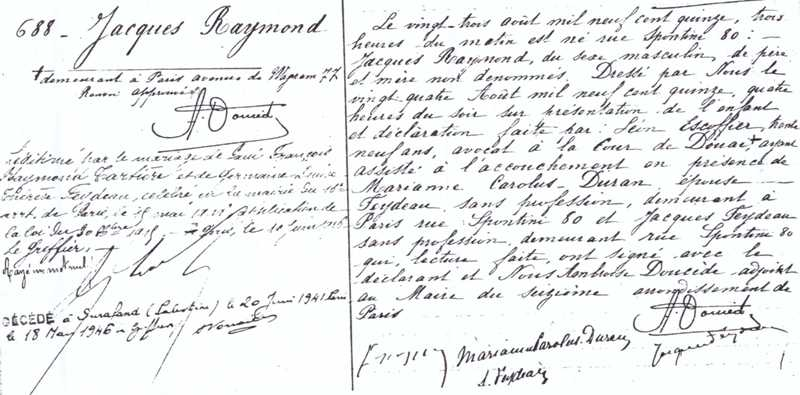 688 - Jacques Raymond
+ demeurant à Paris avenue de Wagram 77
Renvoi approuvé
A. Doucède
Légitimé par le mariage de Paul François
Raymond Tartière et de Germaine Louise
Thérèse Feydeau, célébré en la mairie du 16e
arrt. de Paris, le
la loi du 30 Xbre 1915
Le Greffier,
Rayé un mot nul
DÉCÉDÉ à Sarafand (Palestine) le 20 Juin 1941
le 18 Mai 1946
Le vingt-trois août mil neuf cent quinze, trois
heures du matin est né rue Spontini 80: -
Jacques Raymond, du sexe masculin, de père
et mère non dénommés. Dressé par Nous le
vingt quatre Août mil neuf cent quinze, quatre
heures du soir sur présentation de l'enfant
et déclaration faite par: Léon Escoffier, trente
neuf ans, avocat à la Cour de Douai + ayant
assisté à l'accouchement en présence de
Marianne Carolus-Duran, épouse -
Feydeau, sans profession, demeurant à
Paris rue Spontini 80 et Jacques Feydeau
sans profession, demeurant rue Spontini 80
qui, lecture faite, ont signé avec le
déclarant et Nous Ambroise Doucède adjoint
au Maire du seizième arrondissement de
Paris
A. Doucède
Marianne Carolus-Duran
Jacques Feydeau